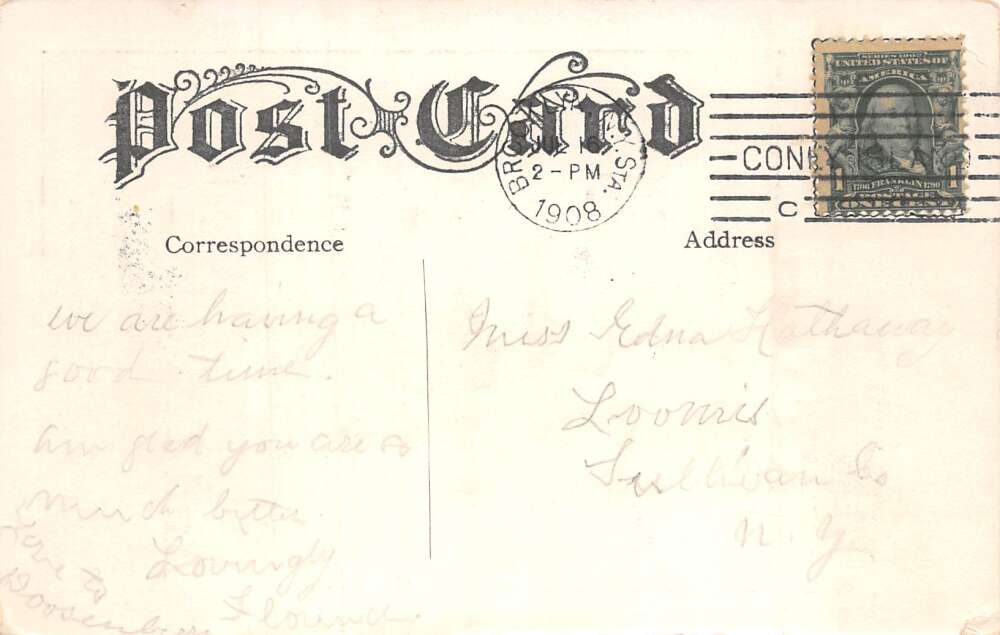 Post Card
BROOKLYN, N.Y. STA.
JUL 16
2-PM
1908
CONEY ISLAND
C
SERIES 1902
UNITED STATES OF
AMERICA
1706 FRANKLIN 1790
1 POSTAGE 1
ONE CENT
Correspondence
Address
we are having a
good time.
am glad you are so
much better
Lovingly
Florence
Love to
Miss Edna Hathaway
Loomis
Sullivan Co
N. Y.